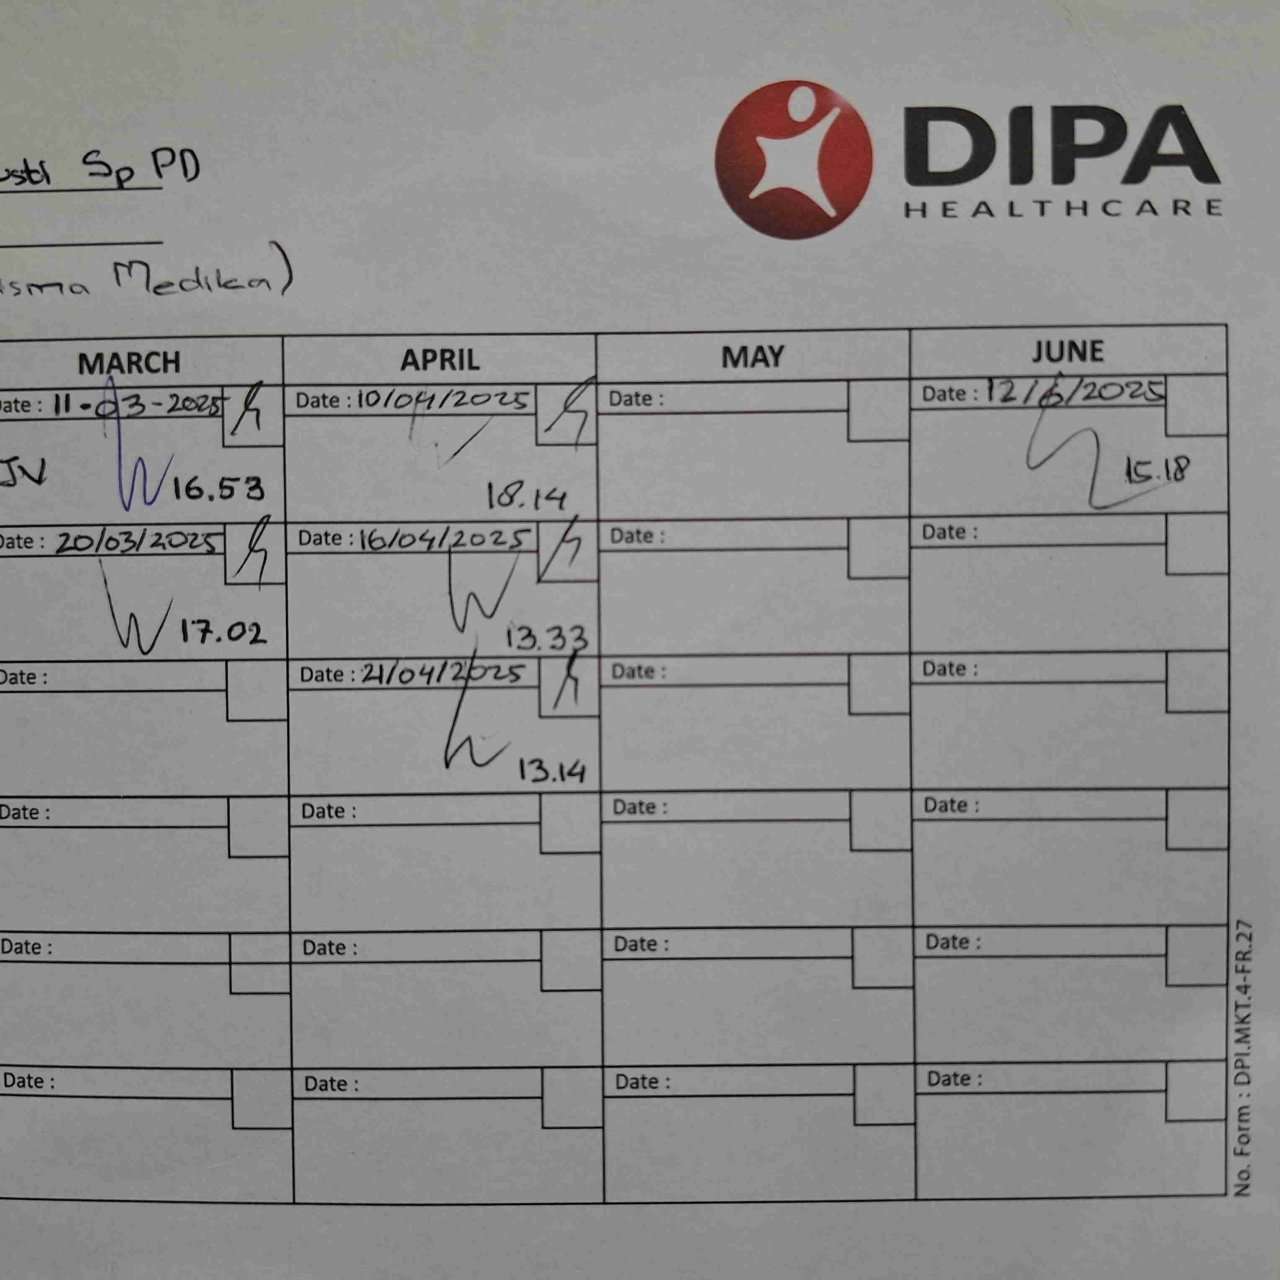 Sp PD
DIPA
HEALTHCARE
Medika)
MARCH APRIL MAY JUNE
Date : 11-03-2025 Date : 10/04/2025 Date : Date : 12/6/2025
JV 16.53 18.14 15.18
Date : 20/03/2025 Date : 16/04/2025 Date : Date :
17.02 13.33
Date : Date : 21/04/2025 Date : Date :
13.14
Date : Date : Date : Date :
Date : Date : Date : Date :
Date : Date : Date : Date :
No. Form : DPI.MKT.4-FR.27